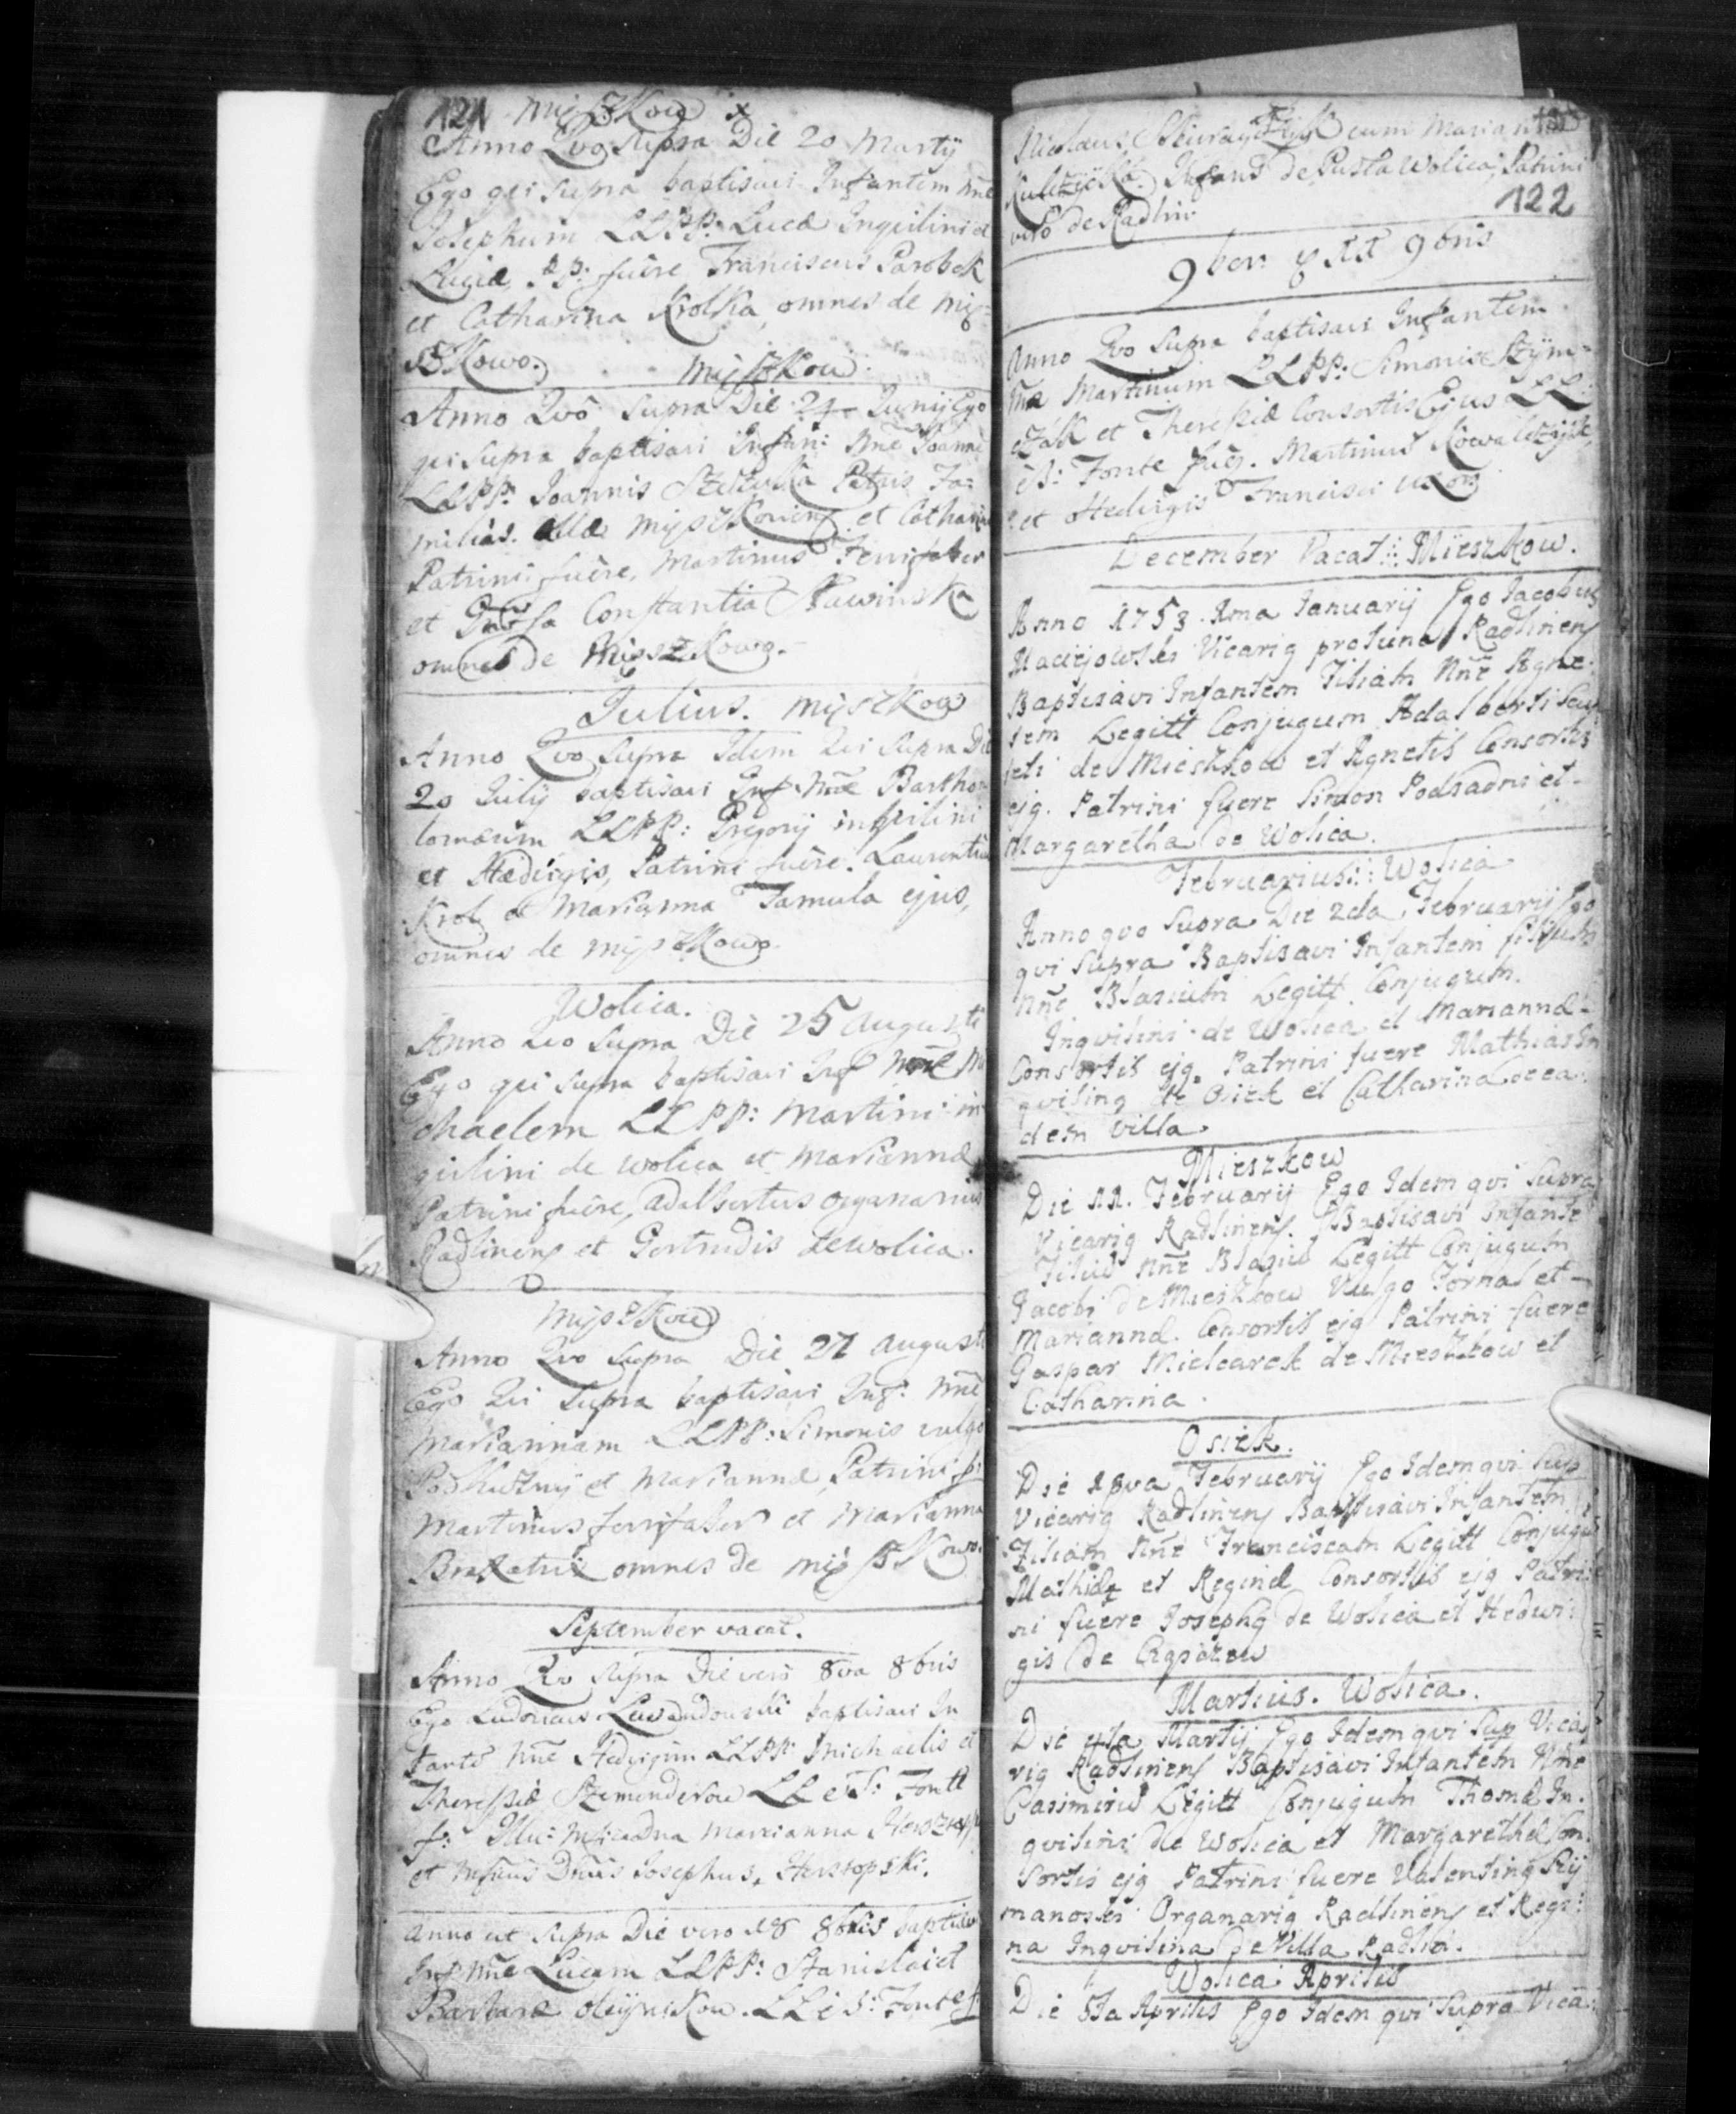 121 Mijszkow x
Anno Quo Supra Die 20 Martij
Ego qui supra baptisavi Infantem nne
Josephum LLPP: Lucæ Inquilini et
Luciæ, PP: fuêre Franciscus Parobek
et Catharina Krolka, omnes de Mij=
szkowo.
Mijszkow.
Anno Quô Supra Die 24 Junij Ego
qui supra baptisavi Infan: nne Joanne
LLPP: Joannis Patris Fa=
milias. et Catharin
Patrini fuêre, Martinus Ferrifaber
et Constantia Sławinska
omnes de Mijszkowo.
Julius. Mijszkow
Anno Quo Supra Idem Qui Supra Die
20 Julij baptisavi Inf. nne Bartho
lomæum LLPP: Gregorij inquilini
et Hædvigis, Patrini fuêre. Laurentius
Krol et Marianna Famula ejus,
omnes de Mijszkowo.
Wolica.
Anno quo Supra Die 25 Augusti
Ego qui supra baptisavi Inf nne Mi
chaelem LLPP: Martini in
quilini de Wolica et Mariannæ
Patrini fuêre, Adalbertus Organarius
Radlinens et Gertrudis de Wolica.
Mijszkow
Anno Quo Supra Die 27 Augusti
Ego Qui Supra baptisavi Inf: nne
Mariannam LLPP: Simonis vulgo
et Mariannæ, Patrini f:
Martinus ferrifaber et Marianna
Braxatrix omnes de Mijszkowo.
September vacat.
Anno Quo Supra Die vero 8va 8bris
Ego Ludovicus baptisavi In
fante nne Hedvigim LLPP: Michaelis et
Theressiæ LL e S: Fonte
f: Marianna
et Dnus Josephus,
Anno ut Supra Die vero 18 8bris baptisavi
Inf nne Lucam LLPP: Stanislai et
Barbaræ LL e S: Fonte f:
Nicolaus cum Marianna
de Pusta Wolica, Patrini
vero de Radlin.
122
9ber: 9bris
Anno Quo Supra baptisavi Infantem
nne Martinum LLPP: Simonis Szym=
czak et Theressiæ Consortis Ejus LL
è S: Fonte fuêr. Martinus Kowalczijk,
et Hedvigis Francisci uxor
December Vacat Mieszkow.
Anno 1753. 1ma Januarij Ego Jacobus
Maciejowski Vicariq protunc Radlinens
Baptisavi Infantem Filiam nne Agne=
tem Legitt Conjugum Adalberti
de Mieszkow et Agnetis Consortis
ejq. Patrini fuere Simon Podsadni et
Margaretha de Wolica.
Februarius: Wolica
Anno quo Supra Die 2da Februarij Ego
qui Supra Baptisavi Infantem filium
nne Blasium Legitt Conjugum.
Inqvilini de Wolica et Mariannæ
Consortis ejq Patrini fuere Mathias In
qvilinq de Osiek et Catharina de ea
dem villa.
Mieszkow
Die 11. Februarij Ego Idem qvi Supra
Vicariq Radlinens. Baptisavi Infante
Filiu nne Blasiu Legitt Conjugum
Jacobi de Mieszkow Vulgo Fornal et
Mariannæ Consortis ejq Patrini fuere
Gaspar Mielcarek de Mieszkow et
Catharina.
Osiek.
Die 18va Februarij Ego Idem qvi Sup
Vicariq Radlinens Baptisavi Infantem
Filiam nne Franciscam Legitt Conjugu
Mathiæ et Reginæ Consortis ejq Patri
ni fuere Josephq de Wolica et Hedwi:
gis de
Martius. Wolica.
Die 4ta Martij Ego Idem qvi Sup Vica
riq Radlinens Baptisavi Infantem nne
Casimiru Legitt Conjugum Thomæ In.
qvilini de Wolica et Margarethæ Con
sortis ejq Patrini fuere Valentinq Szy
manoski Organariq Radlinens et Regi:
na Inqvilina de Villa Radlin.
Wolica Aprilis
Die 5ta Aprilis Ego Idem qvi Supra Vica: